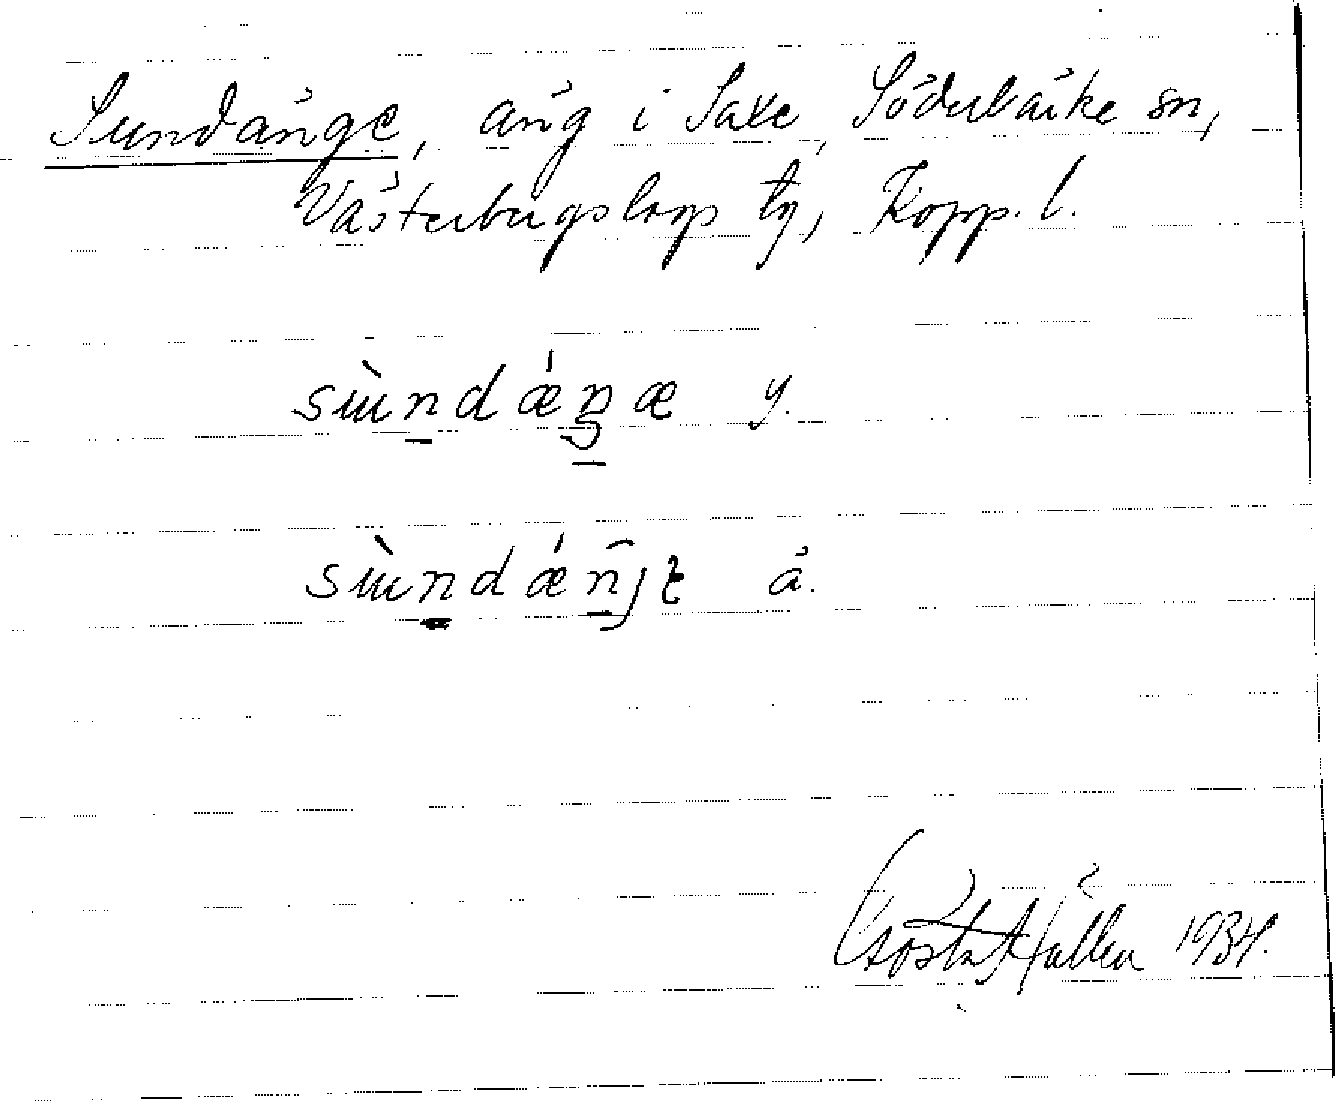 Sundänge, äng i Saxe, Söderbärke sn,
Västerbergslags tg, Kopp. l.
sùndǽŋæ y.
sùndǽn̂ȷt ä.
Gösta Hallen 1934.